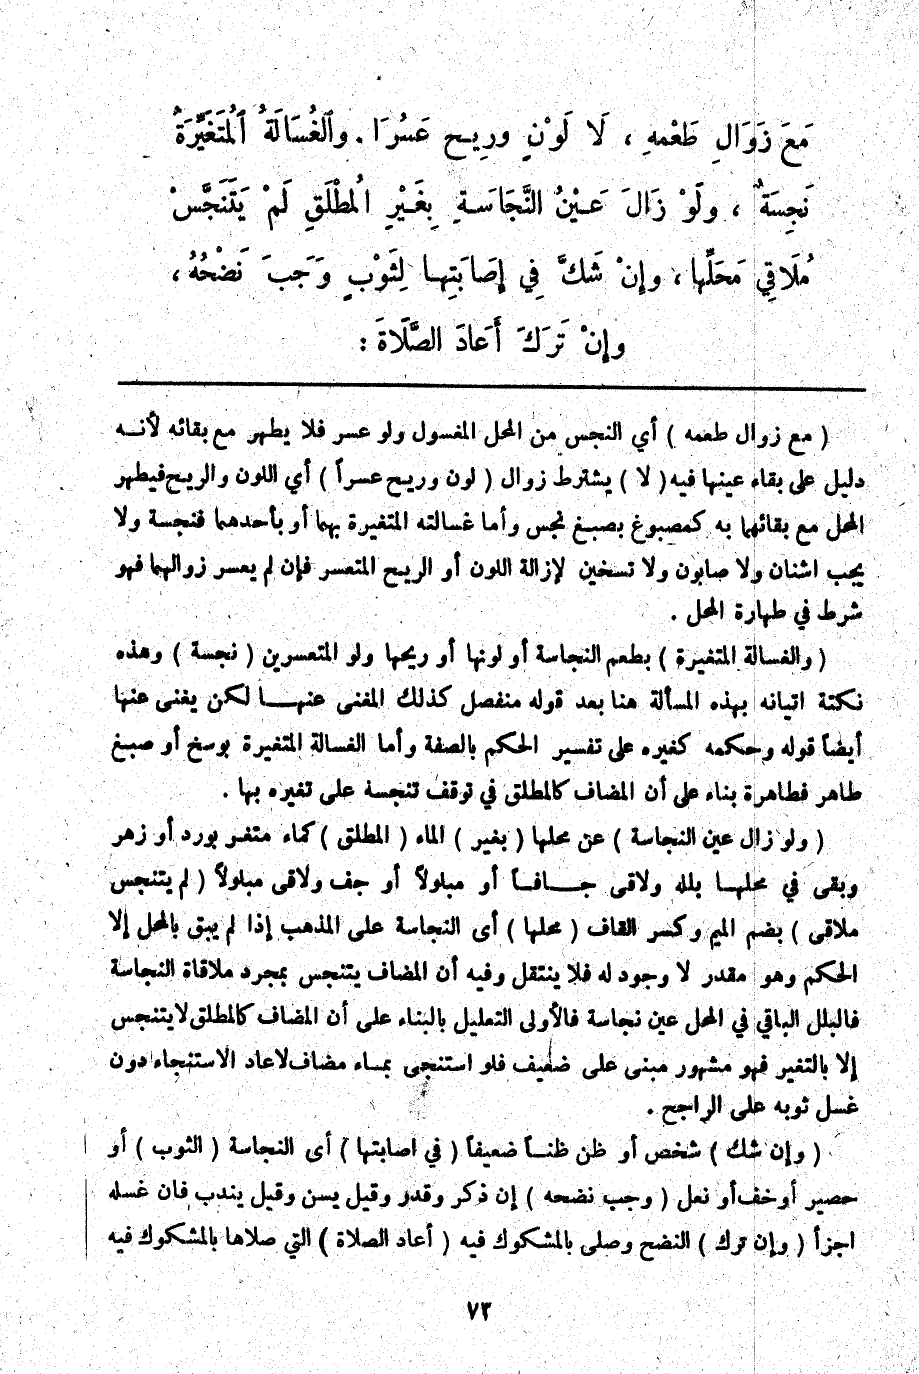 مَعَ زَوَالِ طَعْمهِ ، لَا لَوْنٍ ورِيحٍ عَسُرَا . والْغُسَالَةُ الْمُتَغَيِّرَةُ
نَجِسَةٌ ، ولَوْ زَالَ عَيْنُ النَّجَاسَةِ بِغَيْرِ الْمطْلَقِ لَمْ يَتَنَجَّسْ
مُلَاقِي مَحَلِّها ، وإِنْ شَكَّ فِي إِصَابَتِها لِثَوْبٍ وَجَبَ نَضْحُهُ ،
وإِنْ تَرَكَ أَعَادَ الصَّلَاةَ :
( مع زوال طعمه ) أي النجس من المحل المغسول ولو عسر فلا يطهر مع بقائه لأنه
دليل على بقاء عينها فيه ( لا ) يشترط زوال ( لون وريح عسراً ) أي اللون والريح فيطهر
المحل مع بقائهما به كمصبوغ بصبغ نجس وأما غسالته المتغيرة بهما أو بأحدهما فنجسة ولا
يجب اشنان ولا صابون ولا تسخين لإزالة اللون أو الريح المتعسر فإن لم يعسر زوالهما فهو
شرط في طهارة المحل .
( والغسالة المتغيرة ) بطعم النجاسة أو لونها أو ريحها ولو المتعسرين ( نجسة ) وهذه
نكتة اتيانه بهذه المسألة هنا بعد قوله منفصل كذلك المغنى عنها لكن يغنى عنها
أيضاً قوله وحكمه كغيره على تفسير الحكم بالصفة وأما الغسالة المتغيرة بوسخ أو صبغ
طاهر فطاهرة بناء على أن المضاف كالمطلق في توقف تنجسه على تغيره بها .
( ولو زال عين النجاسة ) عن محلها ( بغير ) الماء ( المطلق ) كماء متغير بورد أو زهر
وبقى في محلها بلله ولاقى جافاً أو مبلولاً أو جف ولاقى مبلولاً ( لم يتنجس
ملاقى ) بضم الميم وكسر القاف ( محلها ) أى النجاسة على المذهب إذا لم يبق بالمحل إلا
الحكم وهو مقدر لا وجود له فلا ينتقل وفيه أن المضاف يتنجس بمجرد ملاقاة النجاسة
فالبلل الباقي في المحل عين نجاسة فالأولى التعليل بالبناء على أن المضاف كالمطلق لا يتنجس
إلا بالتغير فهو مشهور مبنى على ضعيف فلو استنجى بماء مضاف لاعاد الاستنجاء دون
غسل ثوبه على الراجح .
( وإن شك ) شخص أو ظن ظناً ضعيفاً ( في اصابتها ) أى النجاسة ( الثوب ) أو
حصير أو خف أو نعل ( وجب نضحه ) إن ذكر وقدر وقيل يسن وقيل يندب فان غسله
اجزأ ( وإن ترك ) النضح وصلى بالمشكوك فيه ( أعاد الصلاة ) التي صلاها بالمشكوك فيه
٧٣